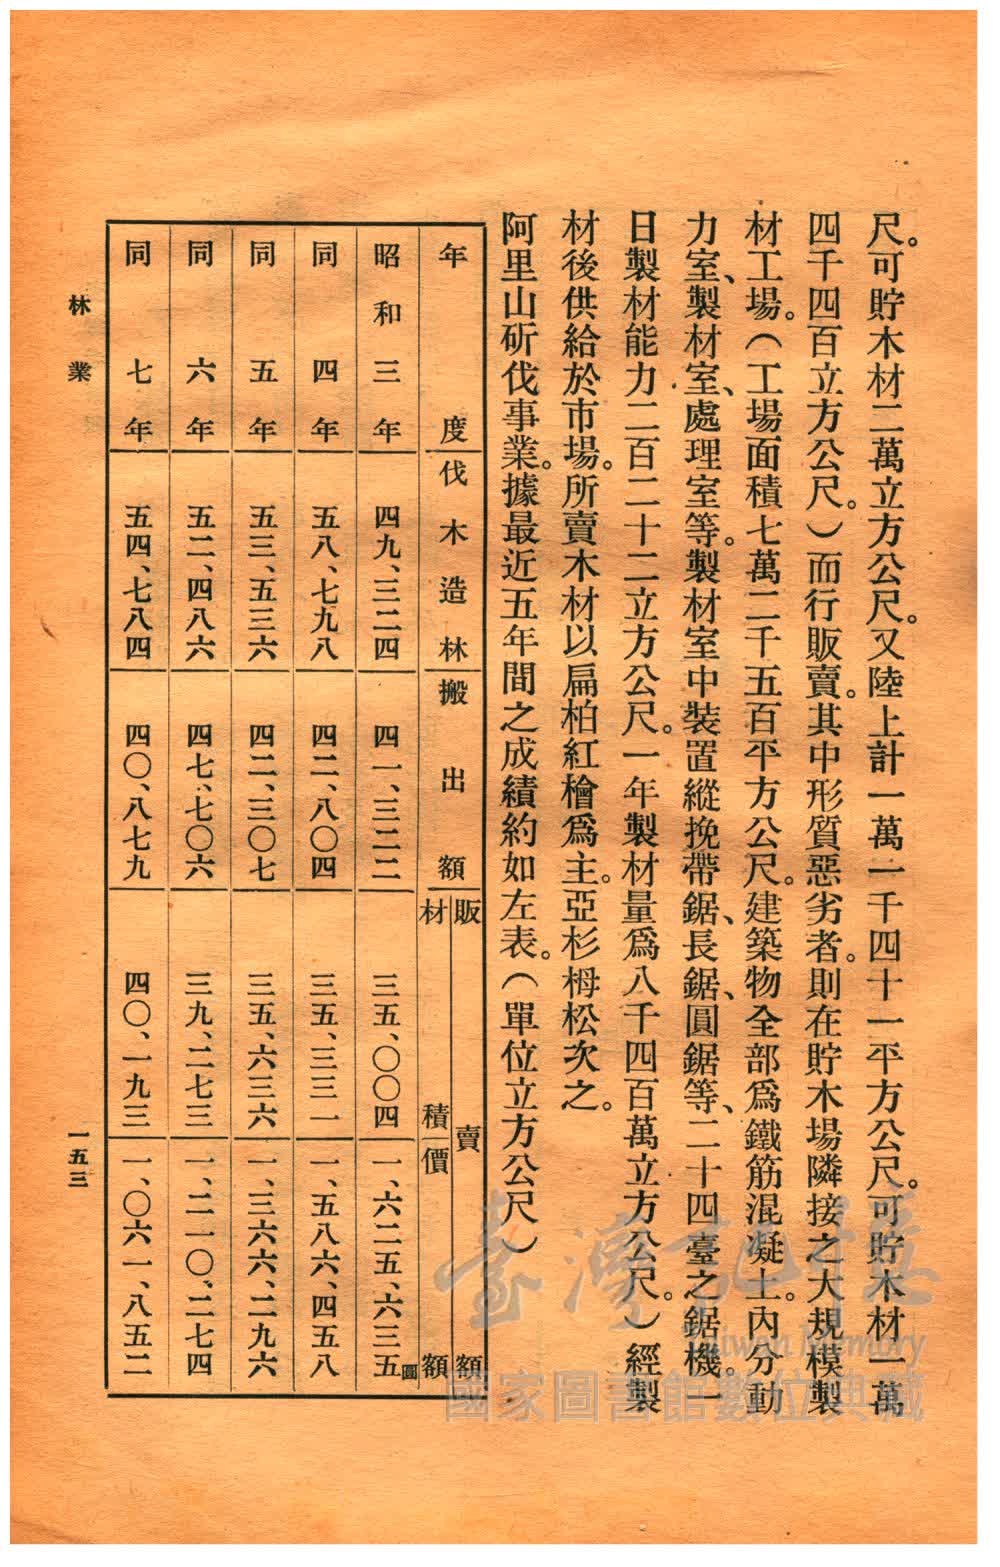 尺。可貯木材二萬立方公尺。又陸上計一萬一千四十一平方公尺。可貯木材一萬
四千四百立方公尺。)而行販賣。其中形質惡劣者。則在貯木場隣接之大規模製
材工場。(工場面積七萬二千五百平方公尺。建築物全部爲鐵筋混凝土。內分動
力室、製材室、處理室等。製材室中裝置縱挽帶鋸、長鋸、圓鋸等、二十四臺之鋸機。一
日製材能力二百二十二立方公尺。一年製材量爲八千四百萬立方公尺。)經製
材後供給於市場。所賣木材以扁柏紅檜爲主。亞杉栂松次之。
阿里山斫伐事業。據最近五年間之成績約如左表。(單位立方公尺)
年度 伐木造林 搬出額 販賣額 材積 價額
昭和三年 四九、三二四 四一、三二二 三五、〇〇四 一、六二五、六三五圓
同四年 五八、七九八 四二、八〇四 三五、三三一 一、五八六、四五八
同五年 五三、五三六 四二、三〇七 三五、六三六 一、三六六、二九六
同六年 五二、四八六 四七、七〇六 三九、二七三 一、二一〇、二七四
同七年 五四、七八四 四〇、八七九 四〇、一九三 一、〇六一、八五二
林業
一五三
臺灣記憶
Taiwan Memory
國家圖書館數位典藏